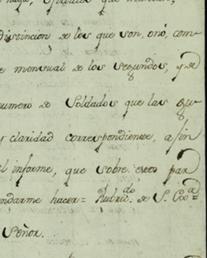 distincion de los que son, onó, com
e mensual de los segundos, y d
numero de Soldados que las gu
y claridad correspondiente, a fin
el informe, que sobre esto par
ndarme hacer. Rubricado de S. Exa
Señor.